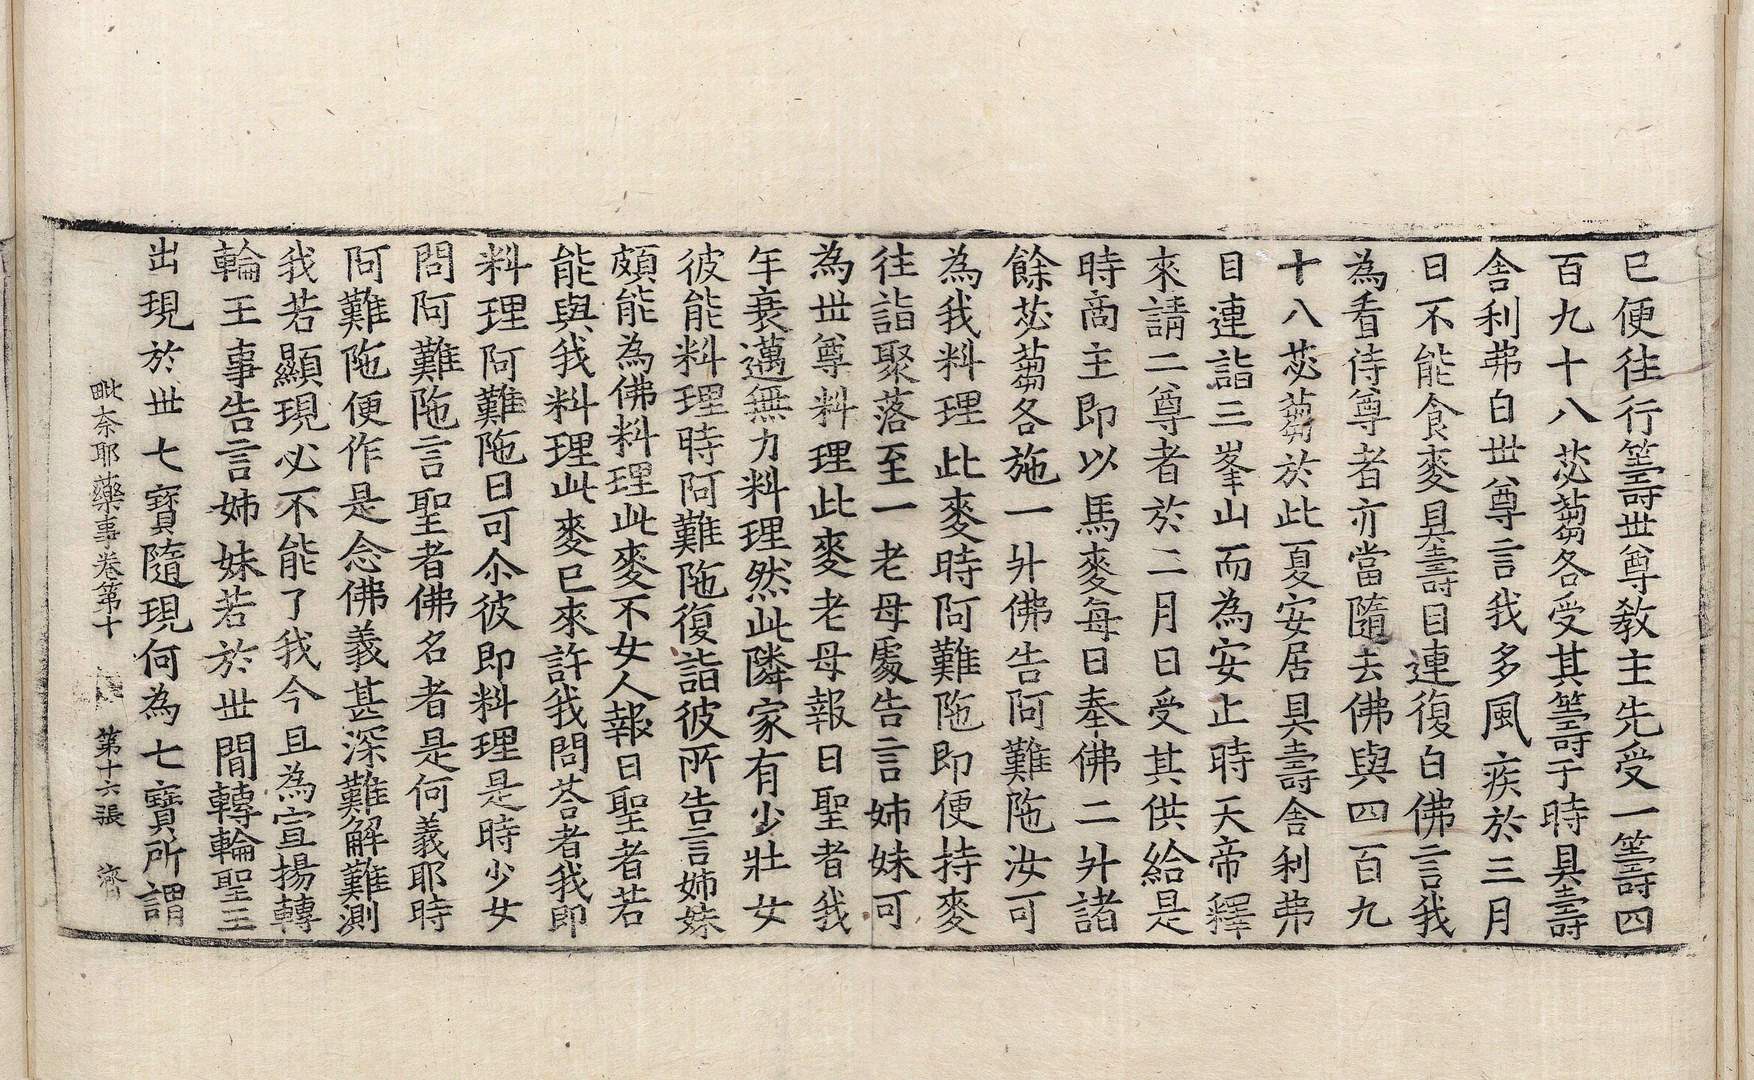 已便往行筹世尊教主先受一筹四
百九十八苾蒭各受其筹于時具壽
舎利弗白世尊言我多風疾於三月
日不能食麥具壽目連復白佛言我
為看侍尊者亦當隨去佛與四百九
十八苾蒭於此夏安居具壽舎利弗
目連詣三峯山而為安止時天帝釋
來請二尊者於二月日受其供給是
時商主即以馬麥每日奉佛二升諸
餘苾蒭各施一升佛告阿難陁汝可
為我料理此麥時阿難陁即便持麥
往詣聚落至一老母處告言姉妹可
為世尊料理此麥老母報曰聖者我
年衰邁無力料理然此隣家有少壯女
彼能料理時阿難陁復詣彼所告言姉妹
頗能為佛料理此麥不女人報曰聖者若
能與我料理此麥已來許我問荅者我即
料理阿難陁曰可尒彼即料理是時少女
問阿難陁言聖者佛名者是何義耶時
阿難陁便作是念佛義甚深難解難測
我若顯現必不能了我今且為宣揚轉
輪王事告言姉妹若於世間轉輪聖王
出現於世七寶隨現何為七寶所謂
毗奈耶藥事卷第十 第十六張 濟